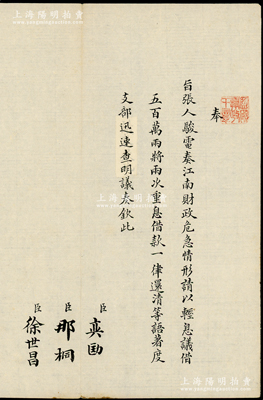 上海陽明拍賣
奉
旨張人駿電奏江南財政危急情形請以輕息議借
五百萬兩將兩次重息借款一律還清等語著度
支部迅速查明議奏欽此
臣奕劻
臣那桐
臣徐世昌
上海陽明拍賣